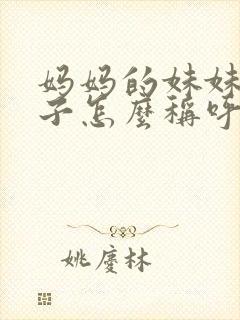 妈妈的妹妹
子怎麼稱呼
姚慶林